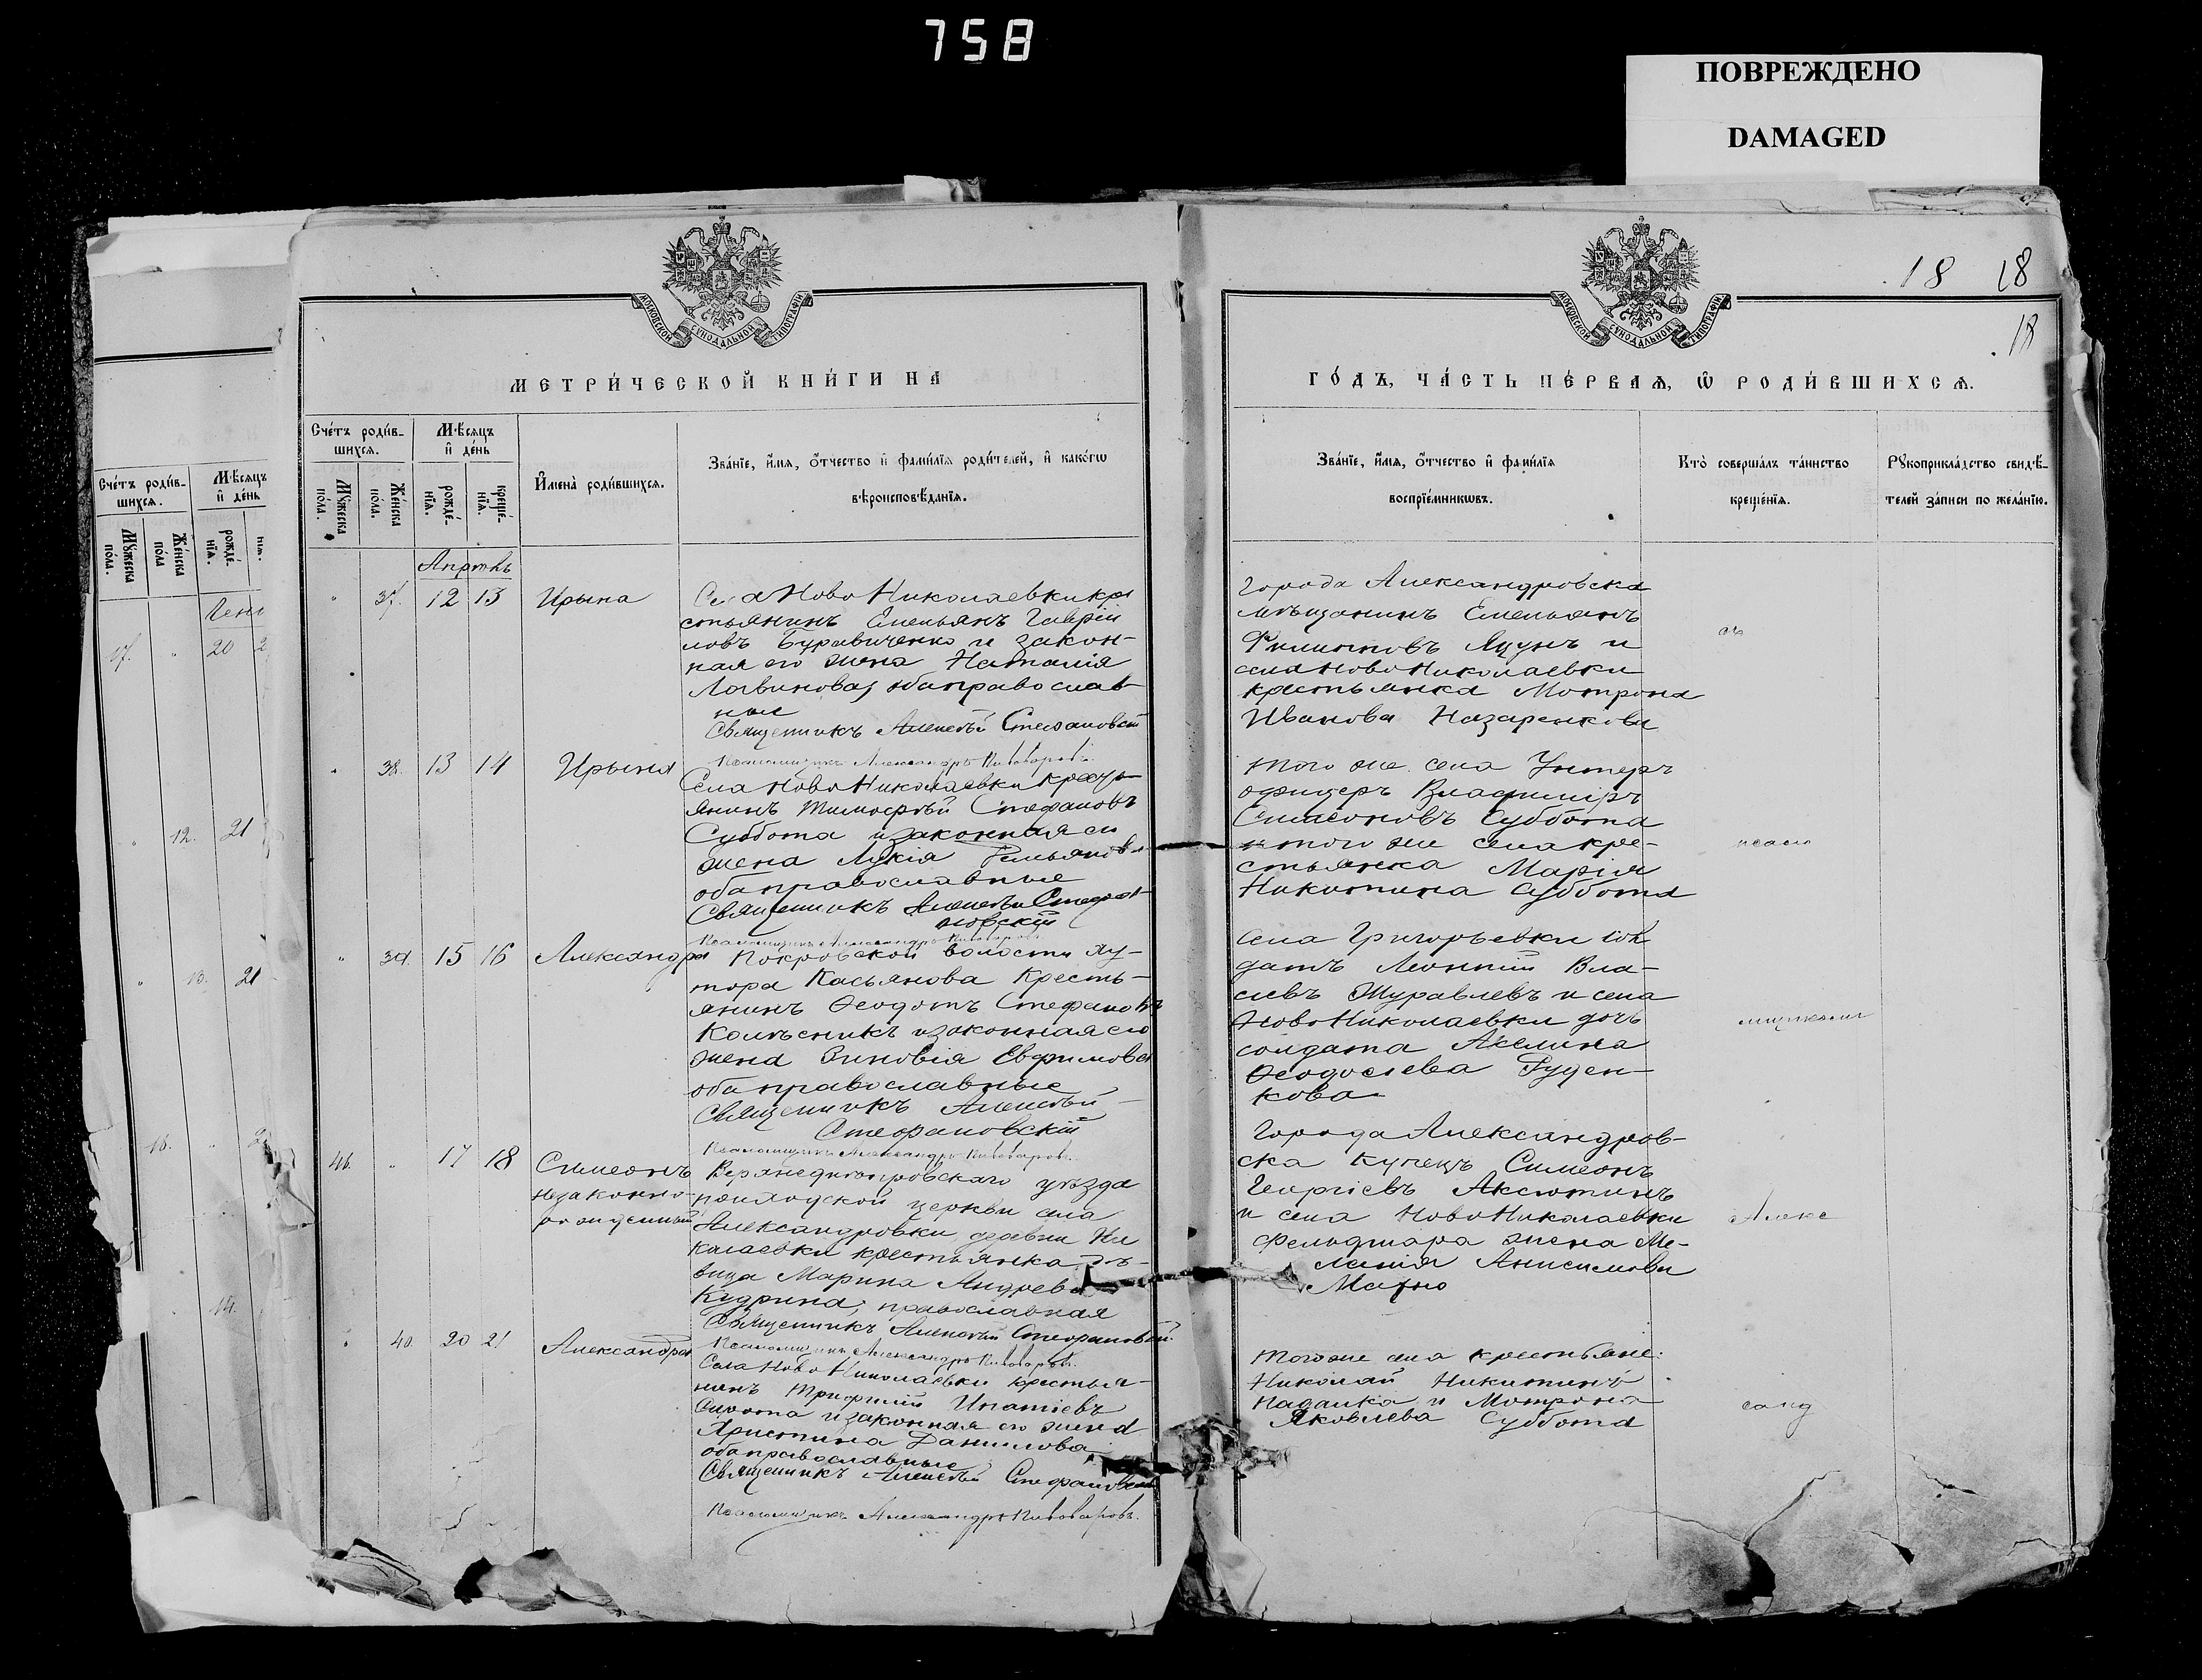 758
ПОВРЕЖДЕНО
DAMAGED
18 18
18
МОСКОВСКОЙ СѴНОДАЛЬНОЙ ТИПОГРАФІИ
МОСКОВСКОЙ СѴНОДАЛЬНОЙ ТИПОГРАФІИ
МЕТРИ́ЧЕСКОЙ КНИ́ГИ НА
ГО́ДЪ, ЧА́СТЬ ПЕ́РВАѦ, Ѡ РОДИ́ВШИХСѦ.
Сче́тъ роди́в-
шихсѧ.
Мѣ́сѧцъ
и҆ де́нь
Мꙋ́жеска
по́ла.
Же́нска
по́ла.
рожде́-
нїѧ.
креще́-
нїѧ.
И҆мена̀ роди́вшихсѧ.
Зва́нїе, и҆́мѧ, ѻ҆́тчество и҆ фами́лїѧ роди́телей, и҆ како́гѡ
вѣроисповѣ́данїѧ.
Зва́нїе, и҆́мѧ, ѻ҆́тчество и҆ фами́лїѧ
воспрїе́мникѡвъ.
Кто̀ соверша́лъ та́инство
креще́нїѧ.
Рꙋкоприкла́дство свидѣ́-
телей за́писи по жела́нїю.
Сче́тъ роди́в-
шихсѧ.
Мѣ́сѧцъ
и҆ де́нь
Мꙋ́жеска
по́ла.
Же́нска
по́ла
рожде́-
нїѧ.
нїѧ.
17. " 20 2
" 12. 21
" 13. 21
18. "
14.
Апрѣль
" 37. 12 13 Ирына
Села Ново Николаевки кре
стьянинъ Емельянъ Гаврiи
ловъ Буравиченко и закон-
ная его жена Наталiя
Логвинова, оба православ
ные
Священникъ Алексѣй Стефановскiй
Псаломщикъ Александръ Пивоваровъ.
Города Александровска
мѣщанинъ Емельянъ
Филиповъ Яцунъ и
села Ново Николаевки
крестьянка Мотрона
Иванова Назаренкова
" 38. 13 14 Ирына
Села Ново Николаевки кресть
янинъ Тимофѣй Стефановъ
Суббота и законная его
жена Лукiя Емельянова
оба православные
Священникъ Алексѣй Стефа
новскiй
Псаломщикъ Александръ Пивоваровъ.
Того же села Унтеръ
офицеръ Владимiръ
Симеоновъ Суббота
и того же села кре-
стьянка Марiя
Никитина Суббота
псало
" 39. 15 16 Александра
Покровской волости ху-
тора Касьянова кресть-
янинъ Феодотъ Стефановъ
Колѣсникъ и законная его
жена Зиновiя Евфимова
оба православные
Священникъ Алексѣй
Стефановскiй
Псаломщикъ Александръ Пивоваровъ.
села Григорьевки сол
датъ Леонтiй Вла-
сiевъ Журавлевъ и села
Ново Николаевки дочь
солдата Акелина
Феодосiева Руден-
кова
мщикомъ
46. " 17 18 Симеонъ
незаконно-
рожденный
Верхнеднѣпровскаго уѣзда
приходской церкви села
Александровки деревни Ни
колаевки крестьянка дѣ-
вица Марина Андреева
Кудрина; православная
Священникъ Алексѣй Стефановскiй.
Псаломщикъ Александръ Пивоваровъ.
Города Александров-
ска купецъ Симеонъ
Георгiевъ Аксютинъ
и села Ново Николаевки
фельдшара жена Ме-
ланiя Анисимова
Махно
Алекс
" 40. 20 21 Александра
Села Ново Николаевки крестья-
нинъ Трифилiй Игнатiевъ
Сирота и законная его жена
Христина Данилова
оба православные
Священникъ Алексѣй Стефановскiй
Псаломщикъ Александръ Пивоваровъ.
Того же села крестьяне:
Николай Никитинъ
Надалка и Мотрона
Яковлева Суббота
санд